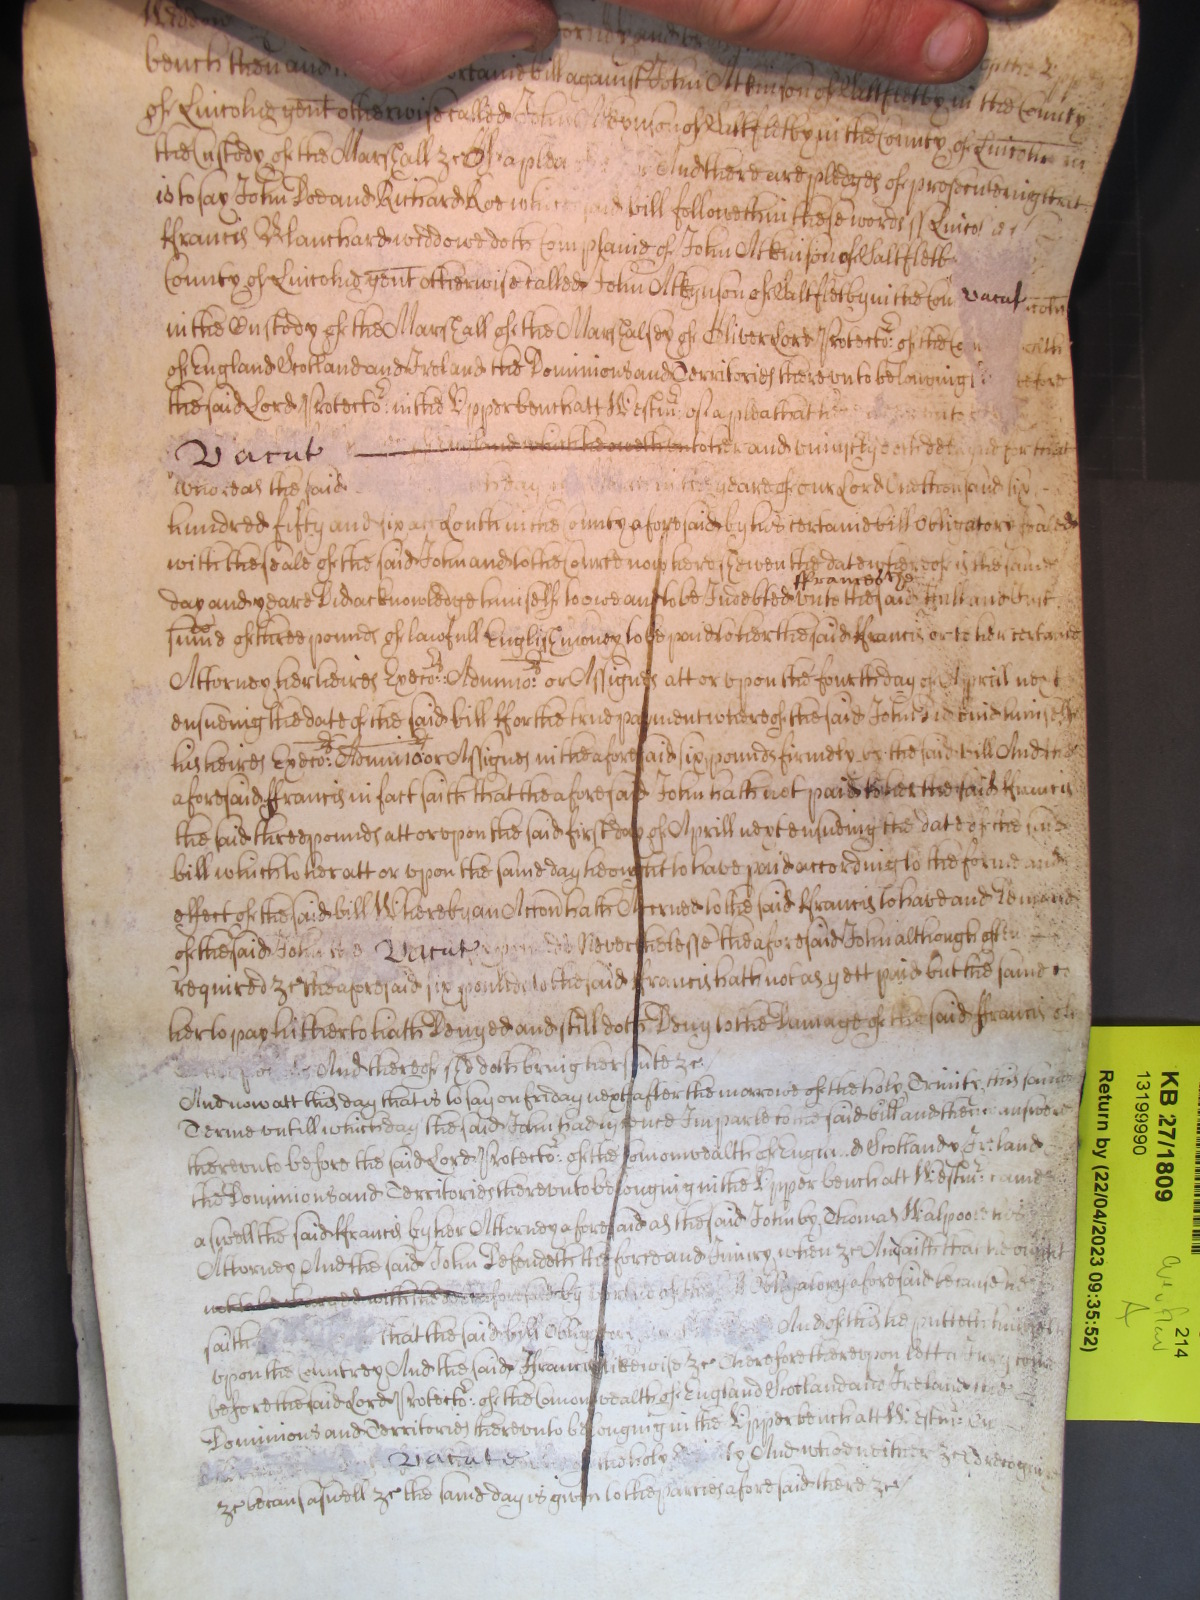 bench then and certaine bill against John Atkinson of Saltfletby in the County
of Lincolne gent otherwise called John Atkynson of Saltfletby in the County of Lincolne in
the Custody of the Marshall &c Of a plea And there are pledges of prosecuteing that
is to say John Doe and Richard Roe which said bill followeth in these words ss Lincol
ffrancis Blanchard widdowe doth Complaine of John Atkinson of Saltfletb
County of Lincolne gent otherwise called John Atkynson of Saltfletby in the Cou vacat
in the Custody of the Marshall of the Marshalsey of Oliver Lord Protector of the Co
of England Scotland and Ireland the Dominions and Territories thereunto belonging before
the said Lord Protector: in the Upper bench att Westmr: of a plea that
Vacat to her and uniustly doth detayne for that
whereas the said day in the yeare of our Lord One thousand six
hundred fifty and six att Louth in the County aforesaid by his certaine bill Obligatory sealed
with the seale of the said John and to the Court now here shewen the date whereof is the same
day and yeare Did acknowledge himself to owe and to be Indebted unto the said ffrances the full and Just
summe of three pounds of lawfull English money to be paid to her the said ffrancis or to her certaine
Attorney her heires Execors: Adminors: or Assignes att or upon the fourth day of Aprill next
ensueing the date of the said bill ffor the true payment whereof the said John did bind himselfe
his heires Execors: Adminors or Assignes in the aforesaid six pounds firmely by the said bill And the
aforesaid ffrancis in fact saith that the aforesaid John hath not paid to her the said ffrancis
the said three pounds att or upon the said first day of Aprill next ensueing the date of the said
bill which to her att or upon the same day he ought to have paid according to the forme and
effect of the said bill Whereby an Accon hath Acrued to the said ffrancis to have and demand
of the said John Vacat Neverthelesse the aforesaid John although often
required &c the aforesaid six pounds to the said ffrancis hath not as yett paid but the same to
her to pay hitherto hath Denyed and still doth Deny to the Damage of the said ffrancis
And thereof she doth bring her suite &c
And now att this day that is to say on friday next after the morrowe of the holy Trinity this same
Terme untill which day the said John had licence to Imparle to the said bill and then to answere
thereunto before the said Lord Protector: of the Comonwealth of England Scotland & Ireland
the Dominions and Territories thereunto belonging in the Upper bench att Westmr: came
aswell the said ffrancis by her Attorney aforesaid as the said John by Thomas Walpoole his
Attorney And the said John Defendeth the force and Iniury when &c And saith that he ought
not to be charged with the debt aforesaid by vertue of the bill Obligatory aforesaid because he
saith that the said bill Obligatory And of this he putteth himself
upon the Countrey And the said ffrancis likewise &c Therefore thereupon lett a Jury come
before the said Lord Protector: of the Comonwealth of England Scotland and Ireland the
Dominions and Territories thereunto belonging in the Upper bench att Westmr: on
Vacat the holy ty And who neither &c to recogn
&c becaus aswell &c the same day is given to the parties aforesaid there &c
KB 27/1809
13199990
214
A
Return by (22/04/2023 09:35:52)